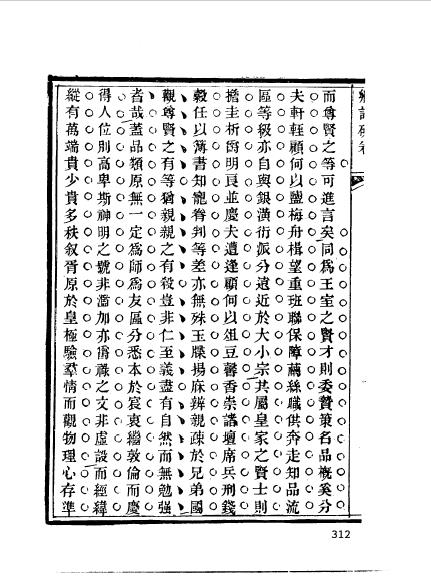 而尊賢之等可進言矣同爲王室之賢才則委贄策名品槪奚分
夫軒輊顧何以鹽梅舟楫望重班聯保障繭絲職供奔走知品流
區等級亦自與銀潢衍派分遠近於大小宗其屬皇家之賢士則
擔圭析爵明良並慶夫遭逢顧何以俎豆馨香崇譜壇席兵刑錢
穀任以簿書知寵眷判等差亦無殊玉牒揚麻辨親疎於兄弟國
觀尊賢之有等猶親親之有殺豈非仁至義盡有自然而無勉强
者哉蓋品類原無一定爲師爲友區分悉本於宸衷繼敦倫而慶
得人位別高卑斯神明之號非濫加亦爵祿之文非虛設而經緯
縱有萬端貴少貴多秩叙胥原於皇極驗羣情而觀物理心存準
312